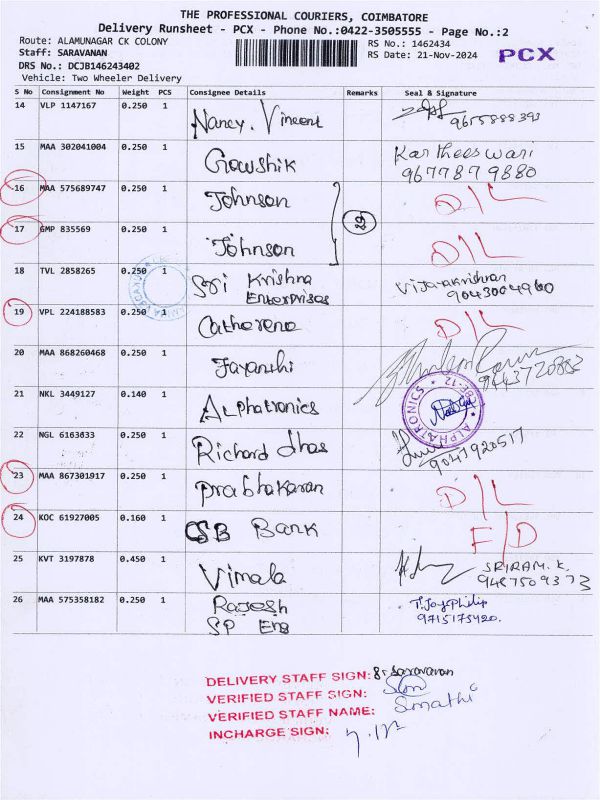 THE PROFESSIONAL COURIERS, COIMBATORE
Delivery Runsheet - PCX - Phone No.:0422-3505555 - Page No.:2
Route: ALAMUNAGAR CK COLONY
Staff: SARAVANAN
DRS No.: DCJB146243402
Vehicle: Two Wheeler Delivery
RS No.: 1462434
RS Date: 21-Nov-2024
PCX
S No Consignment No Weight PCS Consignee Details Remarks Seal & Signature
14 VLP 1147167 0.250 1 Nancy. Vincent 9655888393
15 MAA 302041004 0.250 1 Gowshik Kartheeswari
9677879880
16 MAA 575689747 0.250 1 Johnson D/L
17 GMP 835569 0.250 1 Johnson D/L
18 TVL 2858265 0.250 1 Sri Krishna
Enterprises
Vijayakrishnan
9043004960
19 VPL 224188583 0.250 1 Catherene D/L
20 MAA 868260468 0.250 1 Jayanthi 9443720883
21 NKL 3449127 0.140 1 Alphatronics ALPHATRONICS
22 NGL 6163033 0.250 1 Richard dhas 9047920517
23 MAA 867301917 0.250 1 Prabhakaran D/L
24 KOC 61927005 0.160 1 CSB Bank F/D
25 KVT 3197878 0.450 1 Vimala SRIRAM.K.
9487509373
26 MAA 575358182 0.250 1 Rajesh
SP Eng
T.Joy Philip
9715175420.
DELIVERY STAFF SIGN: Saravanan
VERIFIED STAFF SIGN:
VERIFIED STAFF NAME: Sumathi
INCHARGE SIGN: